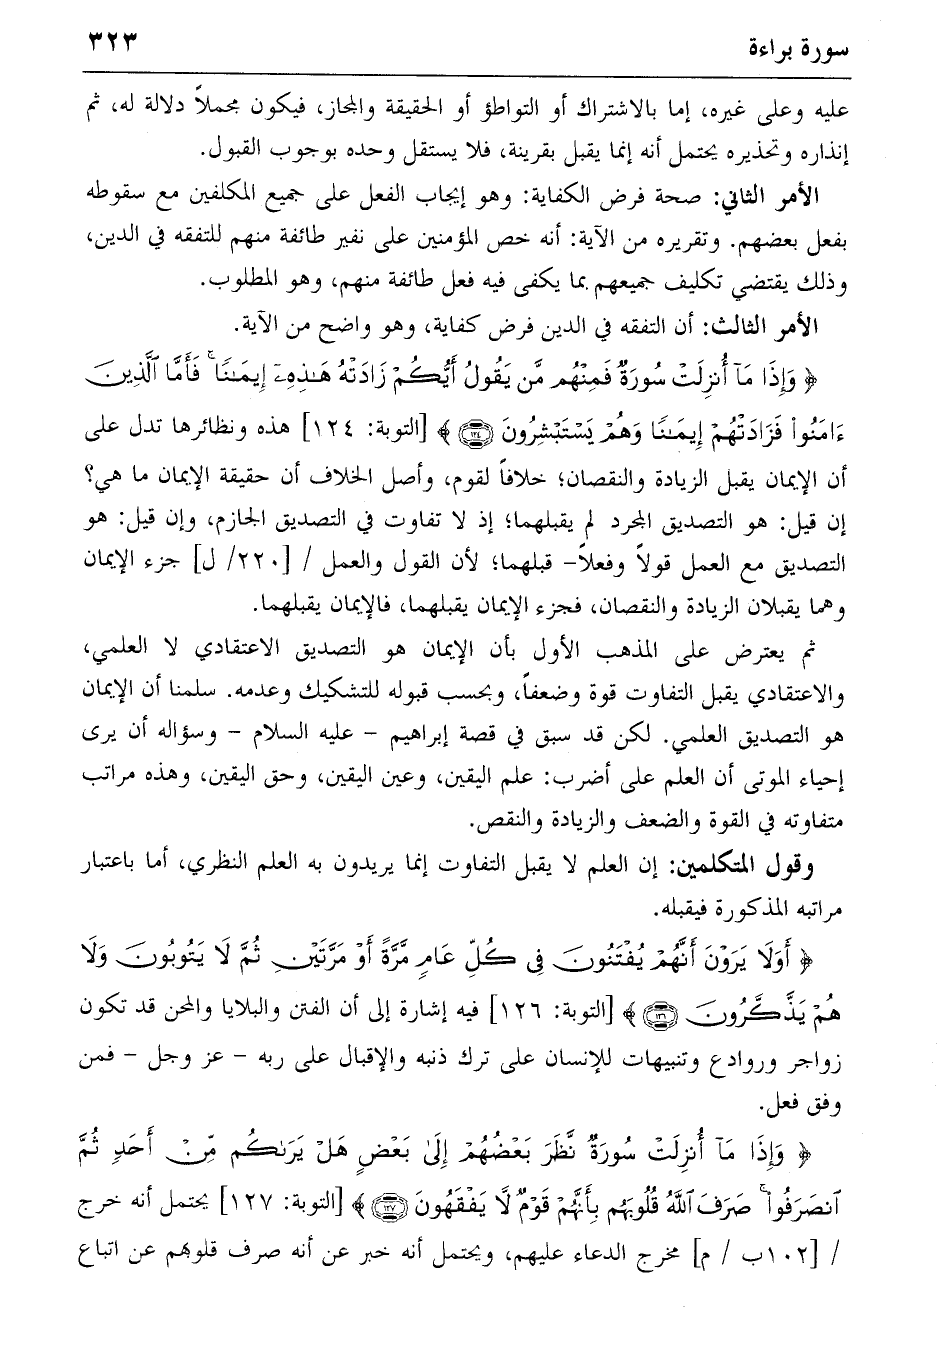 سورة براءة ٣٢٣
عليه وعلى غيره، إما بالاشتراك أو التواطؤ أو الحقيقة والمجاز، فيكون مجملاً دلالة له، ثم
إنذاره وتحذيره يحتمل أنه إنما يقبل بقرينة، فلا يستقل وحده بوجوب القبول.
الأمر الثاني: صحة فرض الكفاية: وهو إيجاب الفعل على جميع المكلفين مع سقوطه
بفعل بعضهم. وتقريره من الآية: أنه خص المؤمنين على نفير طائفة منهم للتفقه في الدين،
وذلك يقتضي تكليف جميعهم بما يكفى فيه فعل طائفة منهم، وهو المطلوب.
الأمر الثالث: أن التفقه في الدين فرض كفاية، وهو واضح من الآية.
﴿ وَإِذَا مَآ أُنزِلَتْ سُورَةٌ فَمِنْهُم مَّن يَقُولُ أَيُّكُمْ زَادَتْهُ هَـٰذِهِۦٓ إِيمَـٰنًا ۚ فَأَمَّا ٱلَّذِينَ
ءَامَنُوا۟ فَزَادَتْهُمْ إِيمَـٰنًا وَهُمْ يَسْتَبْشِرُونَ ١٢٤ ﴾ [التوبة: ١٢٤] هذه ونظائرها تدل على
أن الإيمان يقبل الزيادة والنقصان؛ خلافاً لقوم، وأصل الخلاف أن حقيقة الإيمان ما هي؟
إن قيل: هو التصديق المجرد لم يقبلهما؛ إذ لا تفاوت في التصديق الجازم، وإن قيل: هو
التصديق مع العمل قولاً وفعلاً- قبلهما؛ لأن القول والعمل / [٢٢٠/ ل] جزء الإيمان
وهما يقبلان الزيادة والنقصان، فجزء الإيمان يقبلهما، فالإيمان يقبلهما.
ثم يعترض على المذهب الأول بأن الإيمان هو التصديق الاعتقادي لا العلمي،
والاعتقادي يقبل التفاوت قوة وضعفاً، وبحسب قبوله للتشكيك وعدمه. سلمنا أن الإيمان
هو التصديق العلمي. لكن قد سبق في قصة إبراهيم - عليه السلام - وسؤاله أن يرى
إحياء الموتى أن العلم على أضرب: علم اليقين، وعين اليقين، وحق اليقين، وهذه مراتب
متفاوته في القوة والضعف والزيادة والنقص.
وقول المتكلمين: إن العلم لا يقبل التفاوت إنما يريدون به العلم النظري، أما باعتبار
مراتبه المذكورة فيقبله.
﴿ أَوَلَا يَرَوْنَ أَنَّهُمْ يُفْتَنُونَ فِى كُلِّ عَامٍ مَّرَّةً أَوْ مَرَّتَيْنِ ثُمَّ لَا يَتُوبُونَ وَلَا
هُمْ يَذَّكَّرُونَ ١٢٦ ﴾ [التوبة: ١٢٦] فيه إشارة إلى أن الفتن والبلايا والمحن قد تكون
زواجر وروادع وتنبيهات للإنسان على ترك ذنبه والإقبال على ربه - عز وجل - فمن
وفق فعل.
﴿ وَإِذَا مَآ أُنزِلَتْ سُورَةٌ نَّظَرَ بَعْضُهُمْ إِلَىٰ بَعْضٍ هَلْ يَرَىٰكُم مِّنْ أَحَدٍ ثُمَّ
ٱنصَرَفُوا۟ ۚ صَرَفَ ٱللَّهُ قُلُوبَهُم بِأَنَّهُمْ قَوْمٌ لَّا يَفْقَهُونَ ١٢٧ ﴾ [التوبة: ١٢٧] يحتمل أنه خرج
/ [١٠٢ب / م] مخرج الدعاء عليهم، ويحتمل أنه خبر عن أنه صرف قلوبهم عن اتباع